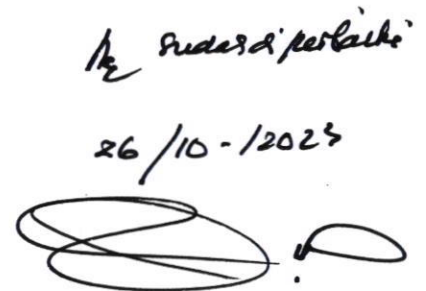 Acc sudah diperbaiki
26/10-/2023